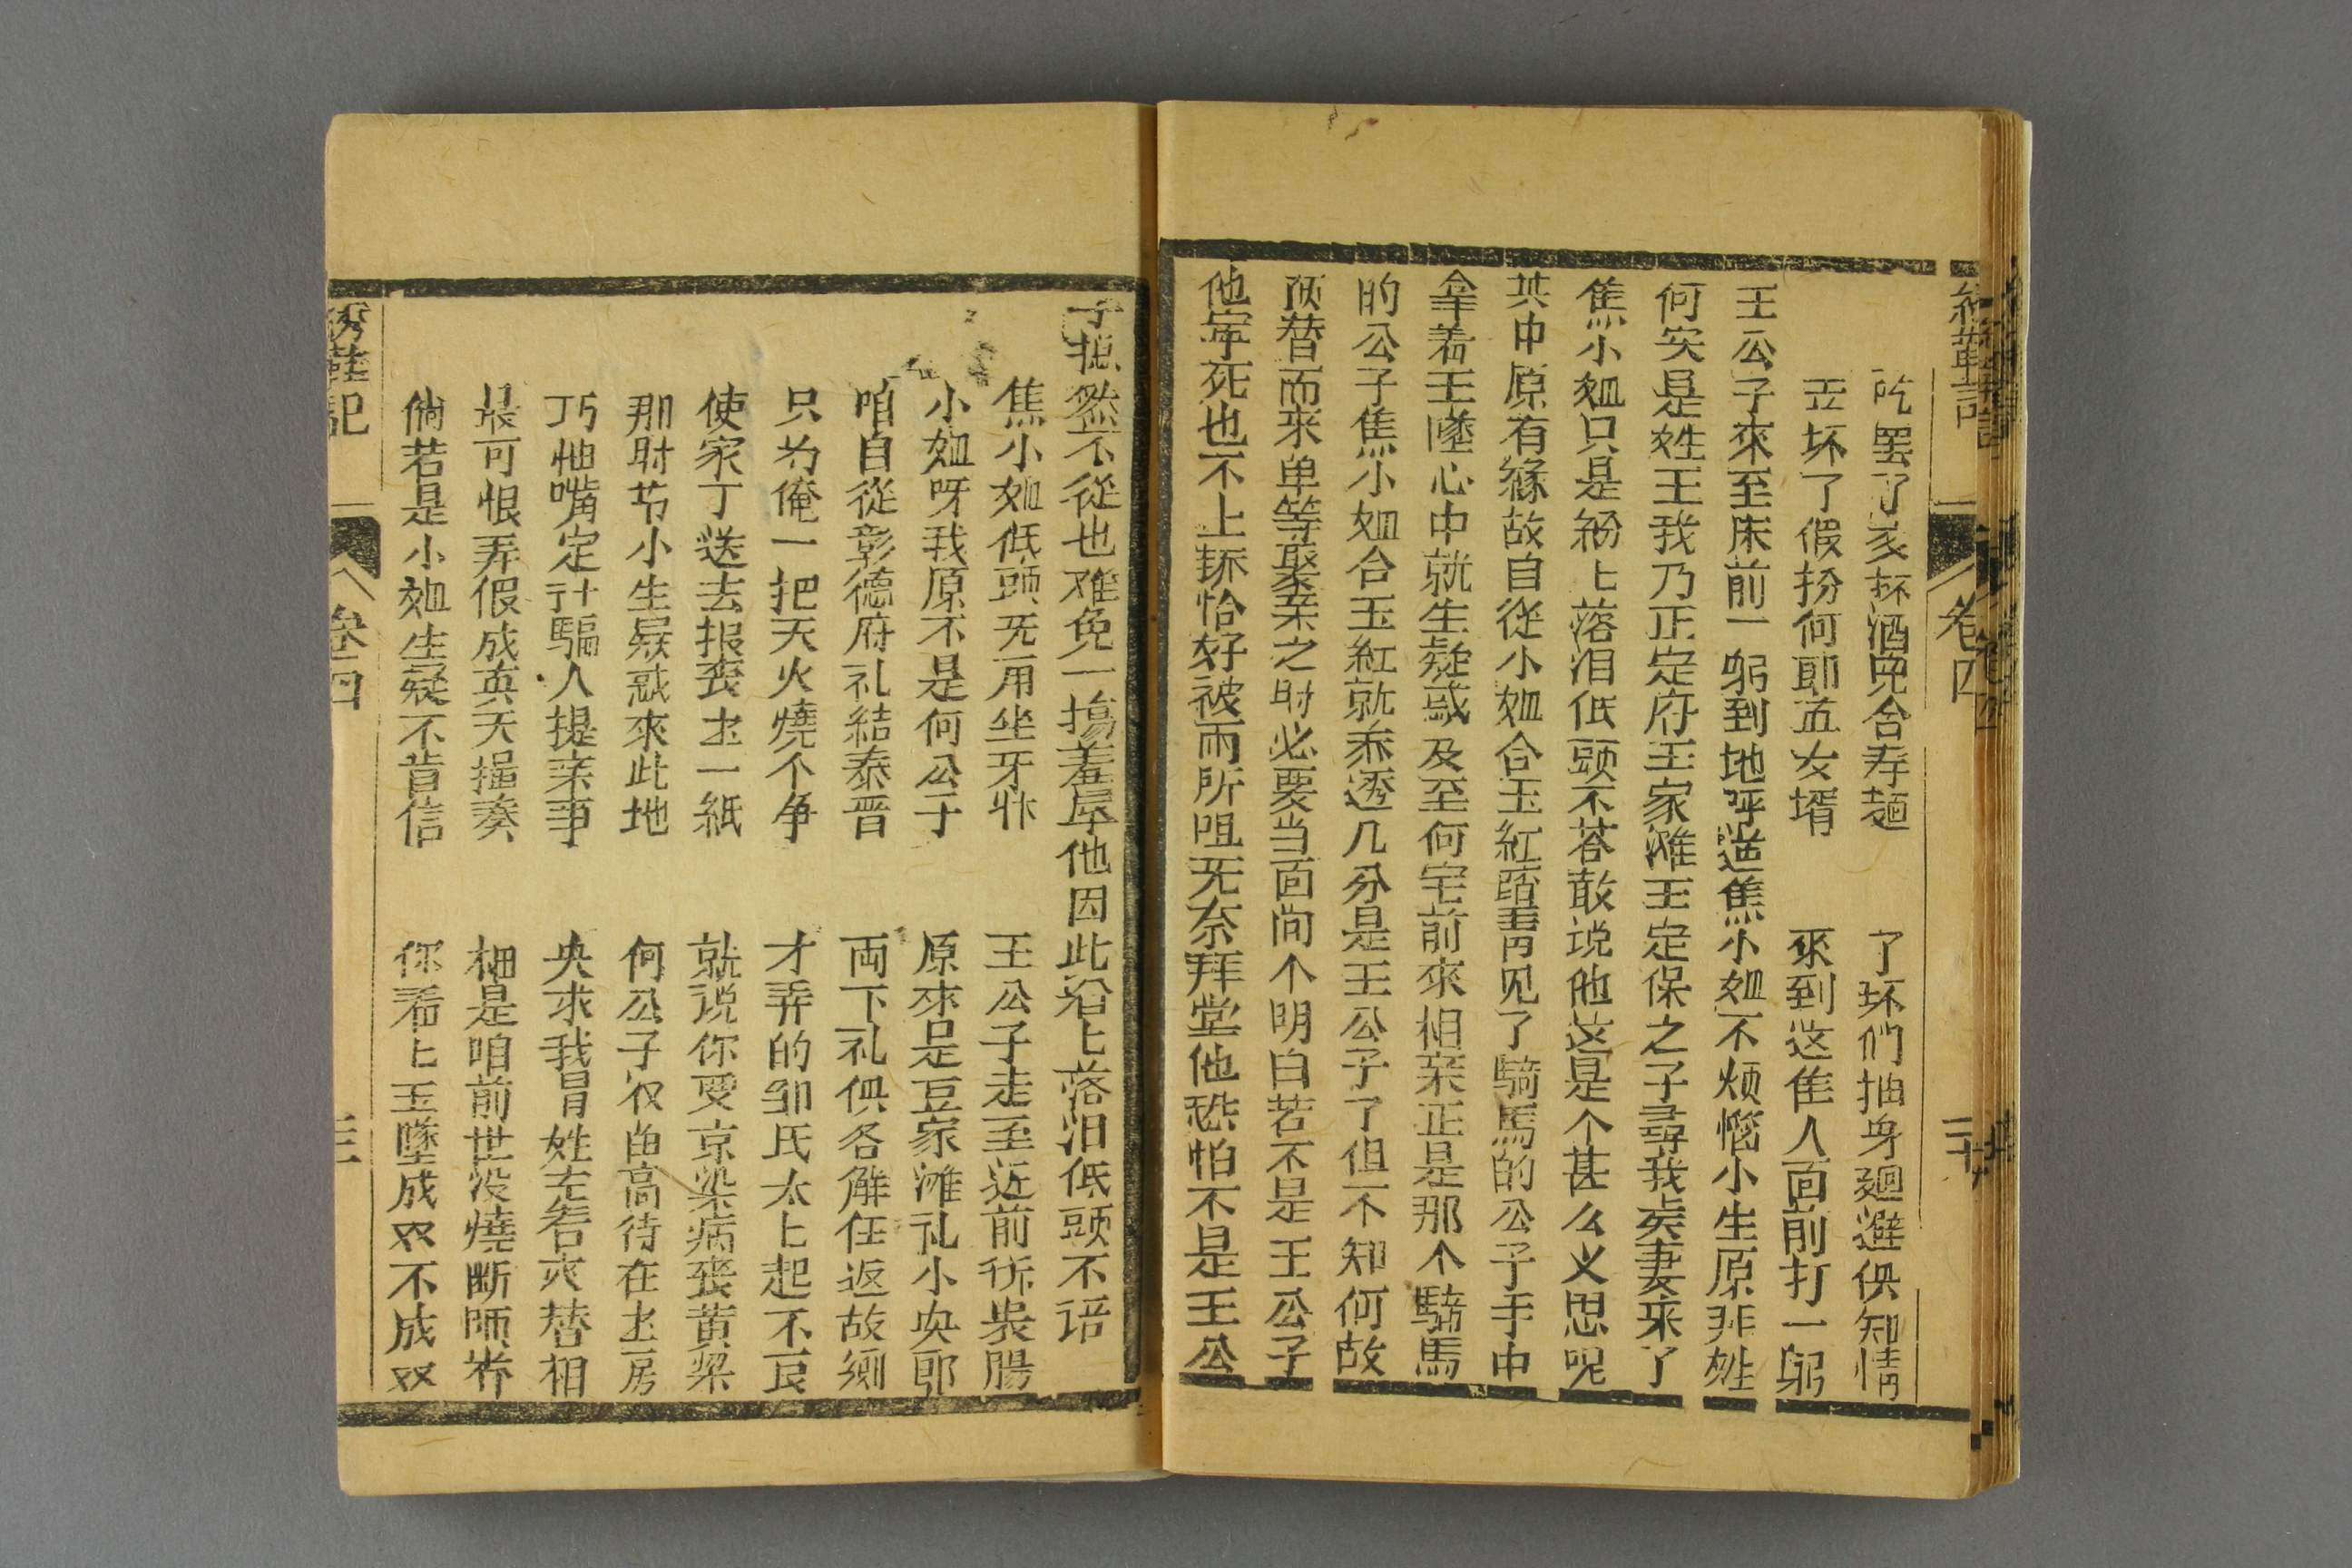 吃罢了交杯酒児合寿麺　了环們抽身廻避俱知情
坏了假扮何郎五女壻　來到这隹人面前打一躬
王公子來至床前一躬到地呼道焦小姐不烦惱小生原非姓
何实是姓王我乃正定府王家滩王定保之子尋我夫妻来了
焦小姐只是纷上落泪低頭不荅敢说他这是个甚么义思呢
其中原有縁故自從小姐合玉紅踏青见了騎馬的公子手中
拿着玉墜心中就生疑惑及至何宅前來相亲正是那个騎馬
的公子焦小姐合玉紅就乔透几分是王公子了但不知何故
顶替而来单等娶亲之时必要当面问个明白若不是王公子
他寕死也不上轿恰好被雨所阻无奈拜堂他恐怕不是王公
子摅然不從也难免一塲羞辱他因此纷上落泪低頭不语
焦小姐低頭无用坐牙床　王公子走至近前拆裴腸
小姐呀我原不是何公子　原來是豆家滩礼小央郎
咱自從彰德府礼結泰晋　両下礼俱各解任返故鄉
只为俺一把天火燒个争　才弄的邹氏太上起不良
使家丁送去报丧圡一紙　就说你耍京染病丧黄粱
那时节小生疑惑來此地　何公子收留高待在圡房
丐他嘴定计騙人提亲事　央求我冒姓充名来替相
最可恨弄假成真天撮奏　細是咱前世没燒断頭香
倘若是小姐生疑不肯信　你看上玉墜成双不成双
绣鞋记
卷四